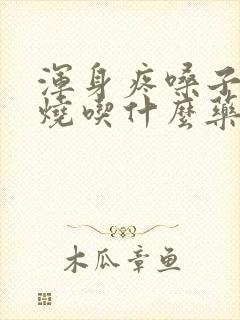 渾身疼嗓子
燒喫什麼藥
木瓜章鱼